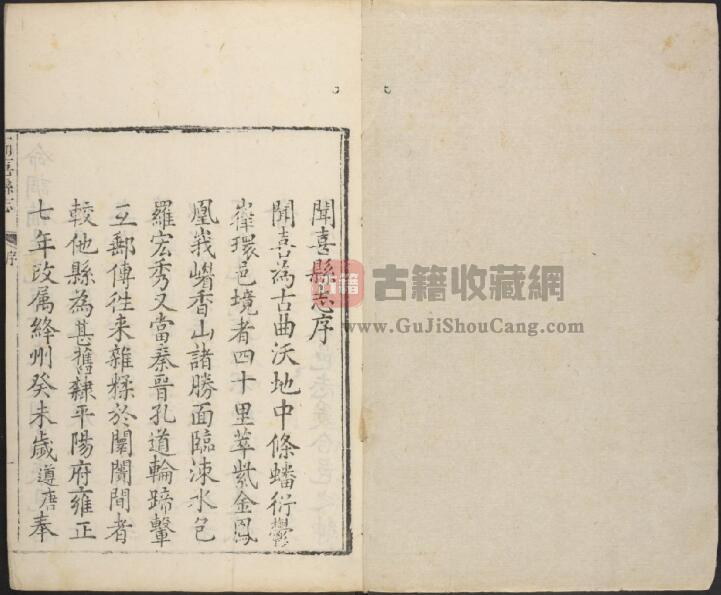 聞喜縣志序
聞喜為古曲沃地中條蟠衍鬱
嵂環邑境者四十里萃紫金鳳
凰峩嵋香山諸勝面臨涑水包
羅宏秀又當秦晉孔道輪蹄轂
互郵傳徃来雜糅於闤闠間者
較他縣為甚舊隸平陽府雍正
七年改属絳州癸未歲遵唐奉
喜縣志
序
古籍
古籍收藏網
www.GuJiShouCang.com